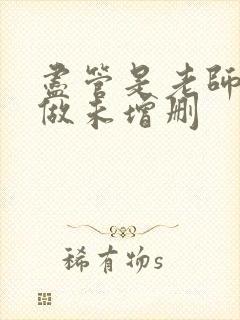 盡管是老師
做未增刪
稀有物s